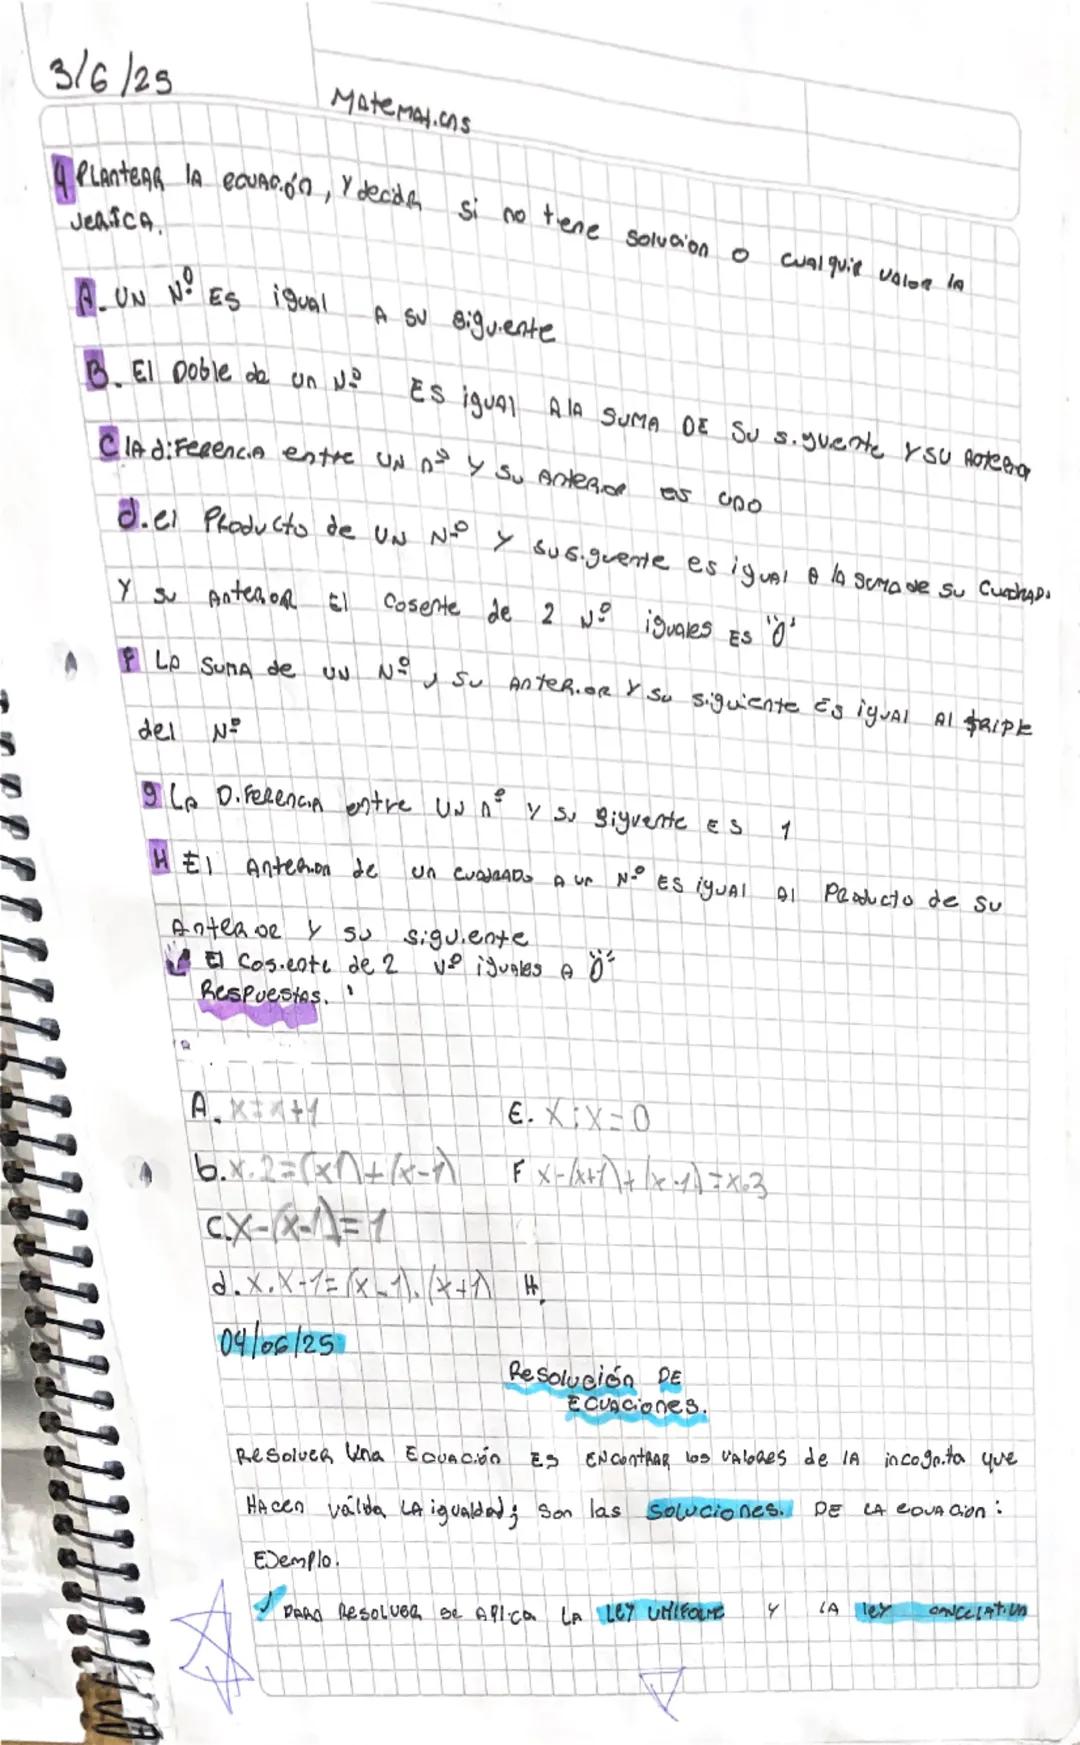 3/6/25
Matematicas
4 Plantear la ecuación, y decidir si no tiene solucion o cualquier valor la
verifica.
A. Un Nº es igual a su siguiente
B. El Doble de un Nº es igual a la suma de su siguente y su anterior
C la diferencia entre un nº y su anterior es uno
d. el producto de un Nº y su siguente es igual a la suma de su cuadrado
y su anterior El cosente de 2 Nº iguales es "0"
F La suma de un Nº, su anterior y su siguiente es igual al triple
del Nº
g La Diferencia entre un nº y su siguente es 1
H El anterior de un cuadrado a un Nº es igual al producto de su
anterior y su siguiente
El cosiente de 2 Nº iguales a "0"
Respuestas.
A. x=x+1
E. x:x=0
b. x.2=(x1)+(x-1)
F x-(x+1)+(x-1)=x.3
c. x-(x-1)=1
d. x.x-1=(x-1).(x+1)
H.
04/06/25
Resolución de
Ecuaciones.
Resolver una ecuación es encontrar los valores de la incognita que
hacen válida la igualdad; son las soluciones. de la ecuacion:
Ejemplo.
para resolver se aplica la ley uniforme y la ley cancelativa